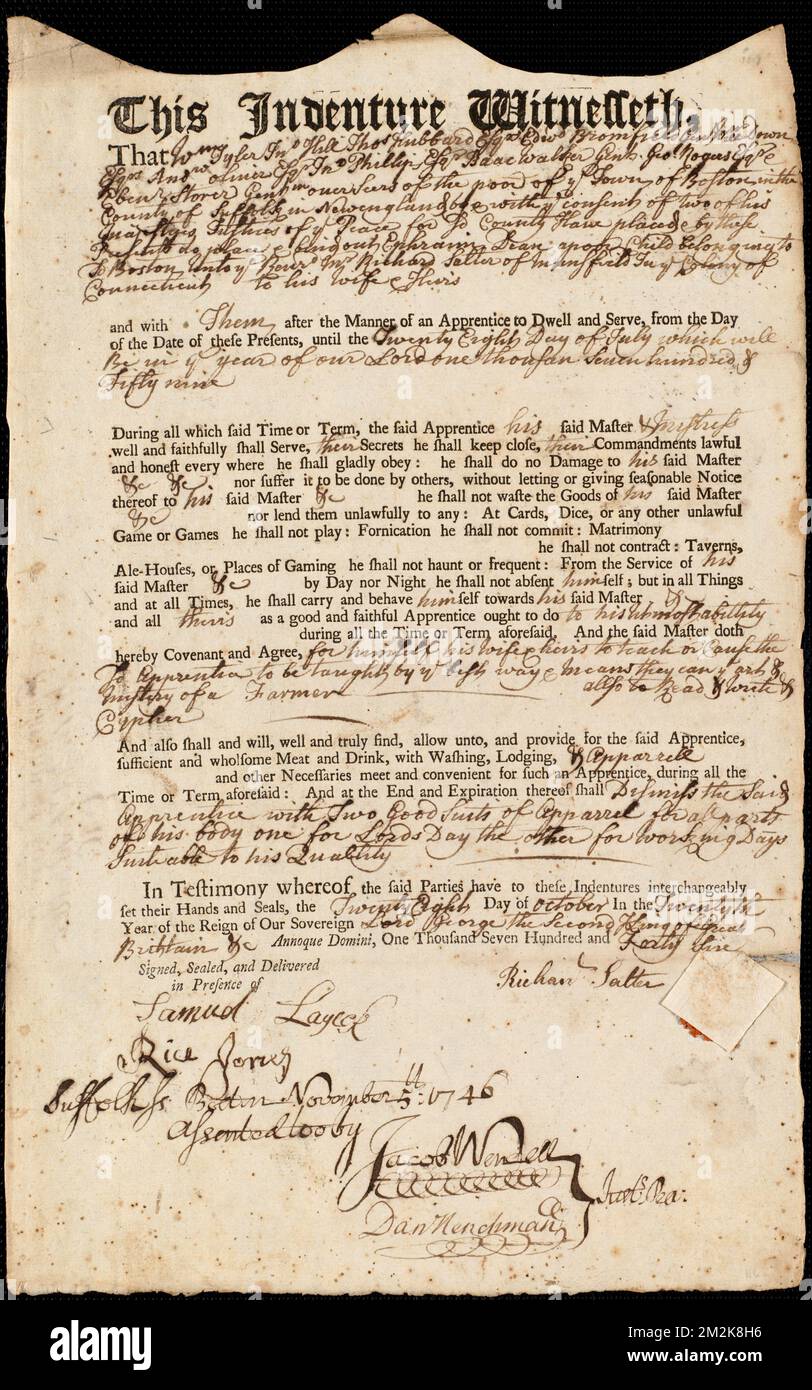 This Indenture Witnesseth,
That Wm Tyler Jno Hill Thos Hubbard Esqrs Edwd Bromfield
Esqrs Andw Oliver Esqr Jno Phillips Esqr Isaac Walker Gent. Esqr &
Ebenr Storer Gentmn overseers of the poor of ye Town of Boston in the
County of Suffolk in Newengland by & with ye consents of Two of his
Majestys Justices of ye Peace for Sd County Have placed & by these
Presents do place & bind out Ephraim a poor Child belonging to
Sd Boston unto ye Revd Mr Richard Salter of Mansfield In ye Colony of
Connecticut to his wife & Heirs
and with Them after the Manner of an Apprentice to Dwell and Serve, from the Day
of the Date of these Presents, until the Twenty Eight Day of July which will
Be in ye year of our Lord one thousan Seven hundred &
Fifty nine
During all which said Time or Term, the said Apprentice his said Master & Mistress
well and faithfully shall Serve, their Secrets he shall keep close, their Commandments lawful
and honest every where he shall gladly obey: he shall do no Damage to his said Master
&c &c nor suffer it to be done by others, without letting or giving seasonable Notice
thereof to his said Master &c he shall not waste the Goods of his said Master
&c nor lend them unlawfully to any: At Cards, Dice, or any other unlawful
Game or Games he shall not play: Fornication he shall not commit: Matrimony
he shall not contract: Taverns,
Ale-Houses, or Places of Gaming he shall not haunt or frequent: From the Service of his
said Master &c by Day nor Night he shall not absent himself; but in all Things
and at all Times, he shall carry and behave himself towards his said Master &
and all theirs as a good and faithful Apprentice ought to do to his utmost abillity
during all the Time or Term aforesaid, And the said Master doth
hereby Covenant and Agree, for himself his wife & heirs to teach or Cause the
Sd Apprentice to be taught by ye best way & means they can ye art &
mistery of a Farmer allso to Read & write &
Cypher
And also shall and will, well and truly find, allow unto, and provide for the said Apprentice,
sufficient and wholsome Meat and Drink, with Washing, Lodging, & Apparrell
and other Necessaries meet and convenient for such an Apprentice, during all the
Time or Term aforesaid: And at the End and Expiration thereof shall Dismiss the Said
Apprentice with Two Good Suits of Apparrel for all parts
of his body one for Lords Day the other for working Days
Suiteable to his Quallity
In Testimony whereof, the said Parties have to these Indentures interchangeably
set their Hands and Seals, the Twenty Eight Day of October In the Twentyth
Year of the Reign of Our Sovereign Lord George the Second King of Great
Brittain &c Annoque Domini, One Thousand Seven Hundred and Forty five
Signed, Sealed, and Delivered
in Presence of
Richard Salter
Samuel Laycock
Rice Jones
Suffolk Ss. Boston November 5th: 1746
Assented to by
Jacob Wendell
Dan Henchman
Just: Pea:
alamy
Image ID: 2M2K8H6
www.alamy.com